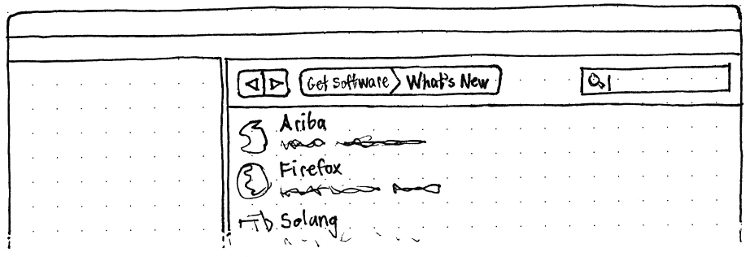 Get Software What's New
Ariba
Firefox
Solang